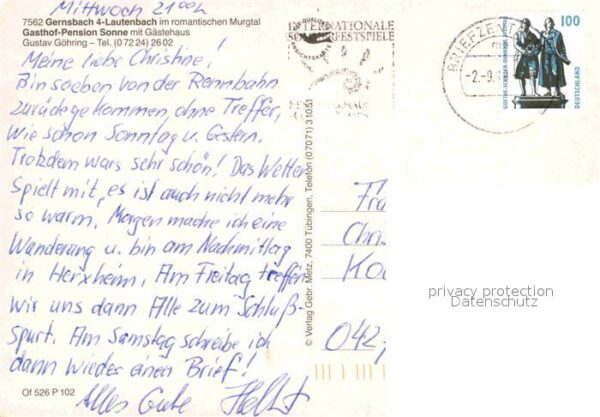 Mittwoch 21 00h
7562 Gernsbach 4-Lautenbach im romantischen Murgtal
Gasthof-Pension Sonne mit Gästehaus
Gustav Göhring – Tel. (07224) 2602
Meine liebe Christine!
Bin soeben von der Rennbahn
zurückgekommen, ohne Treffer,
wie schon Sonntag u. Gestern.
Trotzdem wars sehr schön! Das Wetter
spielt mit, es ist auch nicht mehr
so warm. Morgen mache ich eine
Wanderung u. bin am Nachmittag
in Herxheim. Am Freitag treffen
wir uns dann Alle zum Schluß-
spurt. Am Samstag schreibe ich
dann wieder einen Brief!
Alles Gute
Of 526 P 102
© Verlag Gebr. Metz, 7400 Tübingen, Telefon (07071) 31051
INTERNATIONALE
BRIEFZENT
-2.-9.
100
DEUTSCHLAND
GOETHE-SCHILLER-DENKMAL
Fra
Chr
042
privacy protection
Datenschutz